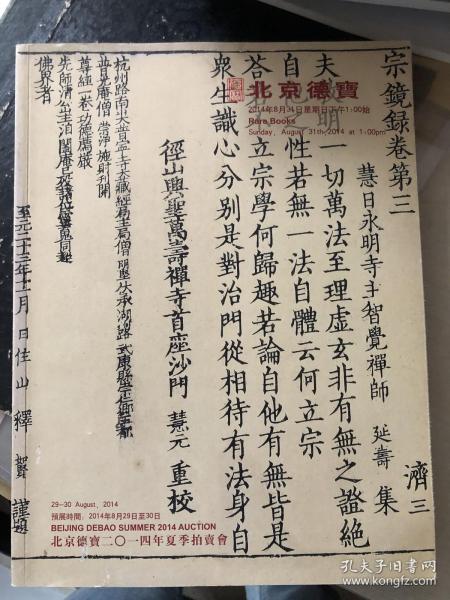 北京德寶
2014年8月31日星期日下午1:00始
Rare Books
Sunday, August 31th, 2014 at 1:00pm
宗鏡録卷第三
濟三
慧日永明寺主智覺禪師 延壽 集
夫一切萬法至理虚玄非有無之證絶
自他之明
性若無一法自體云何立宗
荅立宗學何歸趣若論自他有無皆是
衆生識心分别是對治門從相待有法身自
徑山興聖萬壽禪寺首座沙門 慧元 重校
杭州路南山大普寧寺大藏經局
功德
先師
佛界者
至元二十三年十二月 日住山 釋
29—30 August, 2014
預展時間：2014年8月29日至30日
BEIJING DEBAO SUMMER 2014 AUCTION
北京德寶二〇一四年夏季拍賣會
孔夫子旧书网